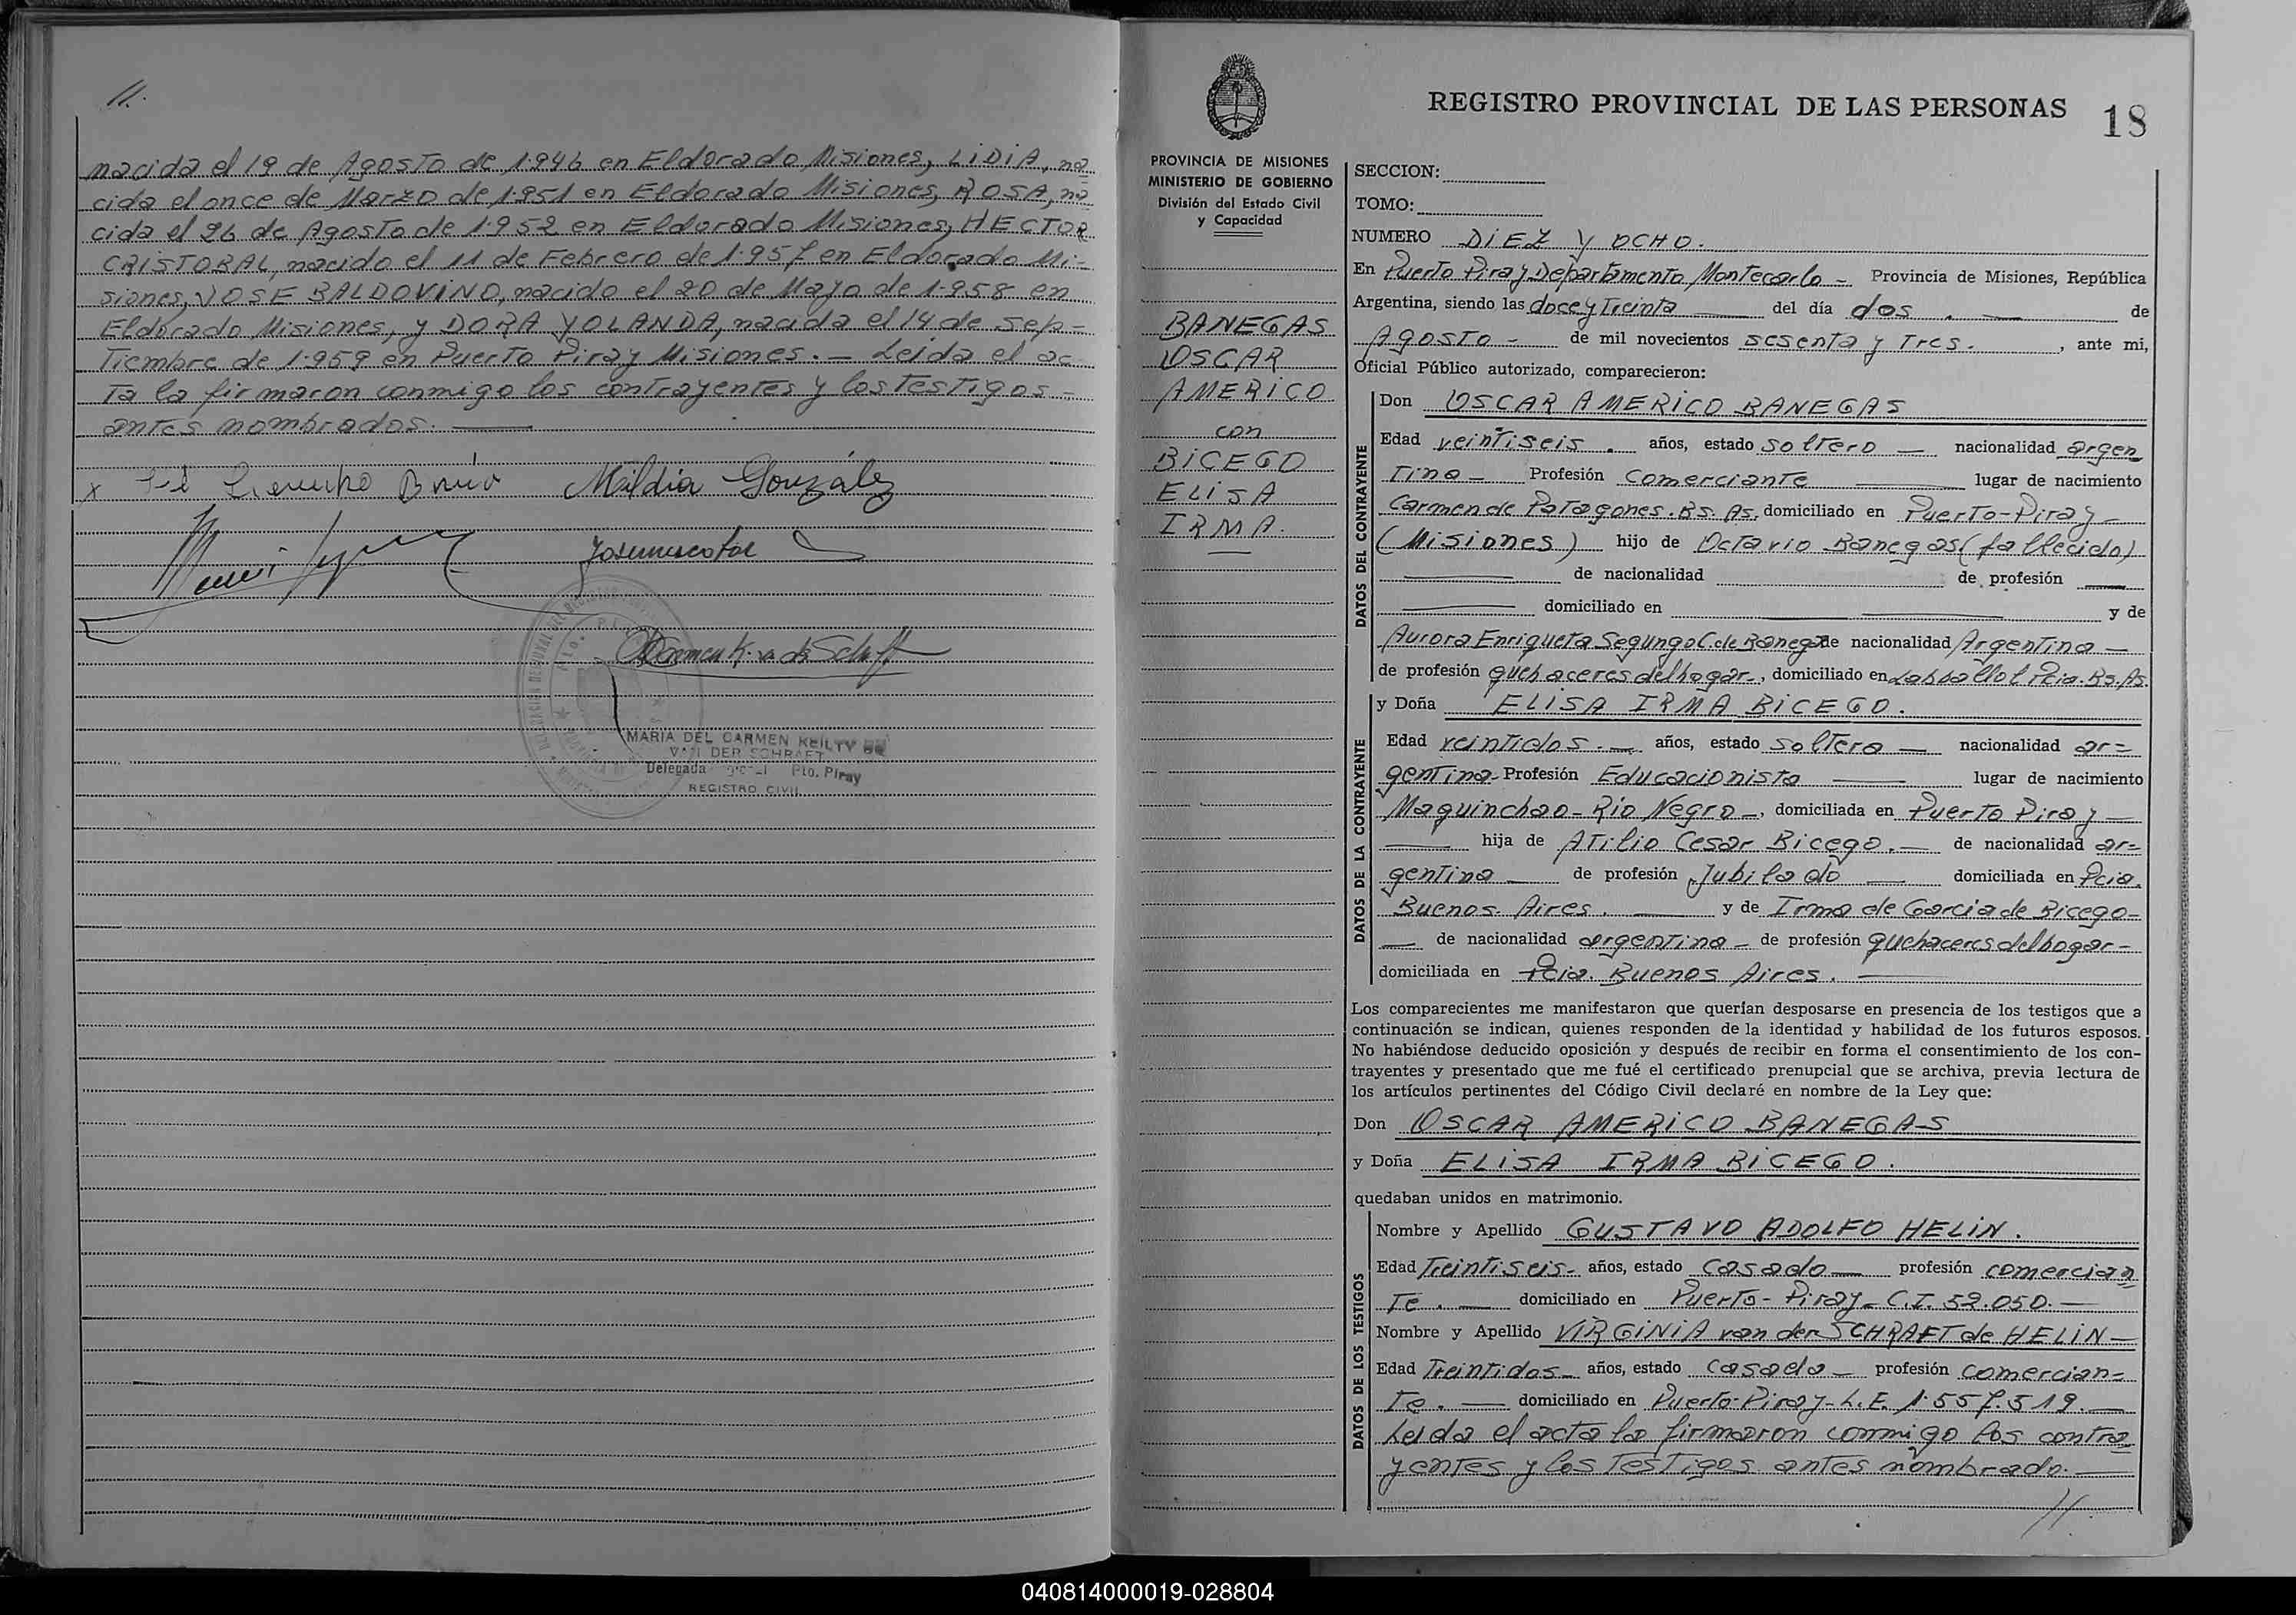 //.
nacida el 19 de Agosto de 1.946 en Eldorado Misiones, LIDIA, na
cida el once de Marzo de 1.951 en Eldorado Misiones, ROSA, na
cida el 26 de Agosto de 1.952 en Eldorado Misiones, HECTOR
CRISTOBAL, nacido el 11 de Febrero de 1.957 en Eldorado Mi-
siones, JOSE BALDOVINO, nacido el 20 de Mayo de 1.958 en
Eldorado Misiones, y DORA YOLANDA, nacida el 14 de Sep-
tiembre de 1.959 en Puerto Piray Misiones. — Leida el ac
ta la firmaron conmigo los contrayentes y los testigos -
antes nombrados. —
x Mildia González
MARIA DEL CARMEN REILTY DE
VAN DER SCHRAFT
Delegada Pto. Piray
REGISTRO CIVIL
REGISTRO PROVINCIAL DE LAS PERSONAS 18
PROVINCIA DE MISIONES
MINISTERIO DE GOBIERNO
División del Estado Civil
y Capacidad
BANEGAS
OSCAR
AMERICO
con
BICEGO
ELISA
IRMA.
SECCION:
TOMO:
NUMERO DIEZ Y OCHO.
En Puerto Piray Departamento Montecarlo - Provincia de Misiones, República
Argentina, siendo las doce y treinta — del día dos . — de
Agosto - de mil novecientos sesenta y tres. , ante mi,
Oficial Público autorizado, comparecieron:
DATOS DEL CONTRAYENTE
Don OSCAR AMERICO BANEGAS
Edad veintiseis . años, estado soltero — nacionalidad argen
tina - Profesión Comerciante — lugar de nacimiento
Carmen de Patagones. Bs. As. domiciliado en Puerto-Piray -
(Misiones) hijo de Octavio Banegas (fallecido)
— de nacionalidad de profesión —
— domiciliado en — y de
Aurora Enriqueta C. de Banegas de nacionalidad Argentina —
de profesión quehaceres del hogar -, domiciliado en Pcia. Bs. As.
DATOS DE LA CONTRAYENTE
y Doña ELISA IRMA BICEGO.
Edad veintidos . — años, estado soltera — nacionalidad ar=
gentina - Profesión Educacionista — lugar de nacimiento
Maquinchao - Rio Negro -, domiciliada en Puerto Piray —
— hija de Atilio Cesar Bicego. — de nacionalidad ar=
gentina — de profesión Jubilado — domiciliada en Pcia.
Buenos Aires. — y de Irma de Garcia de Bicego -
— de nacionalidad argentina - de profesión quehaceres del hogar -
domiciliada en Pcia. Buenos Aires. —
Los comparecientes me manifestaron que querían desposarse en presencia de los testigos que a
continuación se indican, quienes responden de la identidad y habilidad de los futuros esposos.
No habiéndose deducido oposición y después de recibir en forma el consentimiento de los con-
trayentes y presentado que me fué el certificado prenupcial que se archiva, previa lectura de
los artículos pertinentes del Código Civil declaré en nombre de la Ley que:
Don OSCAR AMERICO BANEGAS
y Doña ELISA IRMA BICEGO.
quedaban unidos en matrimonio.
DATOS DE LOS TESTIGOS
Nombre y Apellido GUSTAVO ADOLFO HELIN.
Edad Treintiseis - años, estado casado — profesión comercian
te. — domiciliado en Puerto - Piray - C.I. 52.050. —
Nombre y Apellido VIRGINIA van der SCHRAFT de HELIN —
Edad Treintidos - años, estado casada - profesión comercian=
te. — domiciliado en Puerto-Piray - L.E. 1.557.519. —
Leida el acta la firmaron conmigo los contra
yentes y los testigos antes nombrado. —
//.
040814000019-028804